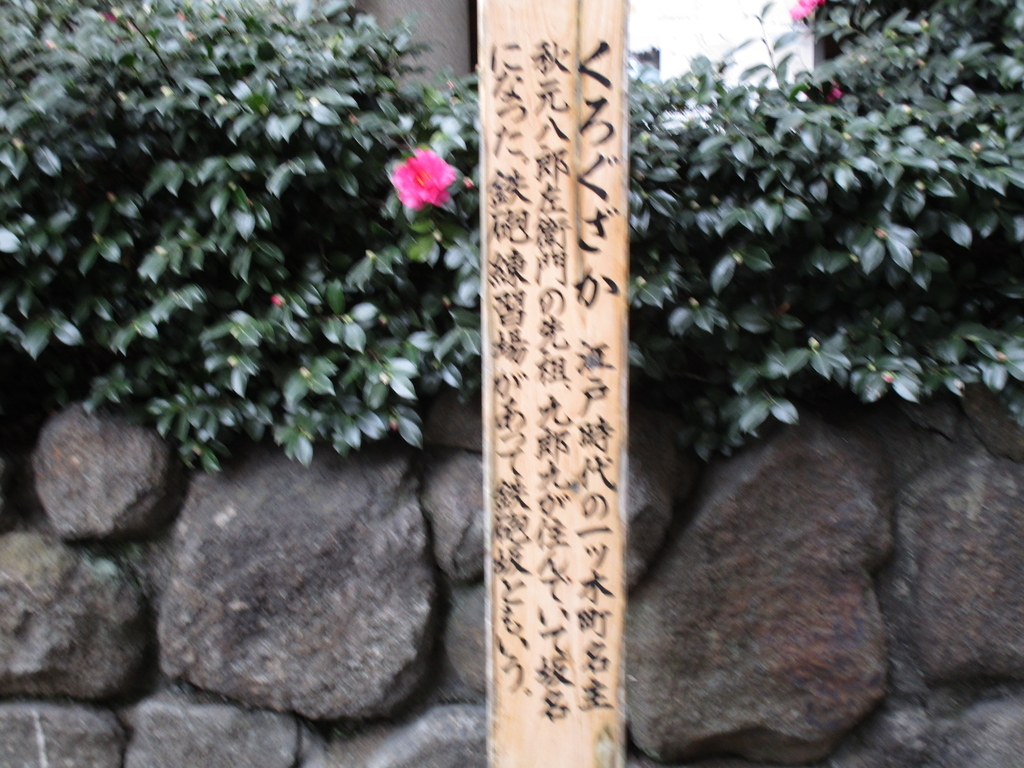 くろぐざか 江戸時代の一ッ木町名主
秋元八郎左衛門の先祖、九郎九が住んでいて坂名
になった。鉄砲練習場があって鉄砲坂ともいう。